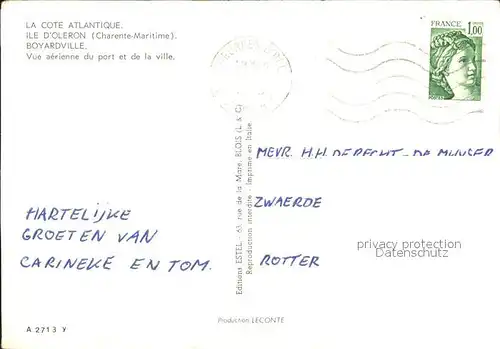 LA COTE ATLANTIQUE.
ILE D'OLERON (Charente-Maritime).
BOYARDVILLE.
Vue aérienne du port et de la ville.
FRANCE
1,00
HARTELIJKE
GROETEN VAN
CARINEKE EN TOM.
Editions ESTEL - 61 rue de la Mare, BLOIS (L & C)
Reproduction interdite - Imprimé en Italie
MEVR. H.H.
ZWAERDE
ROTTER
privacy protection
Datenschutz
Production LECONTE
A 2713 y